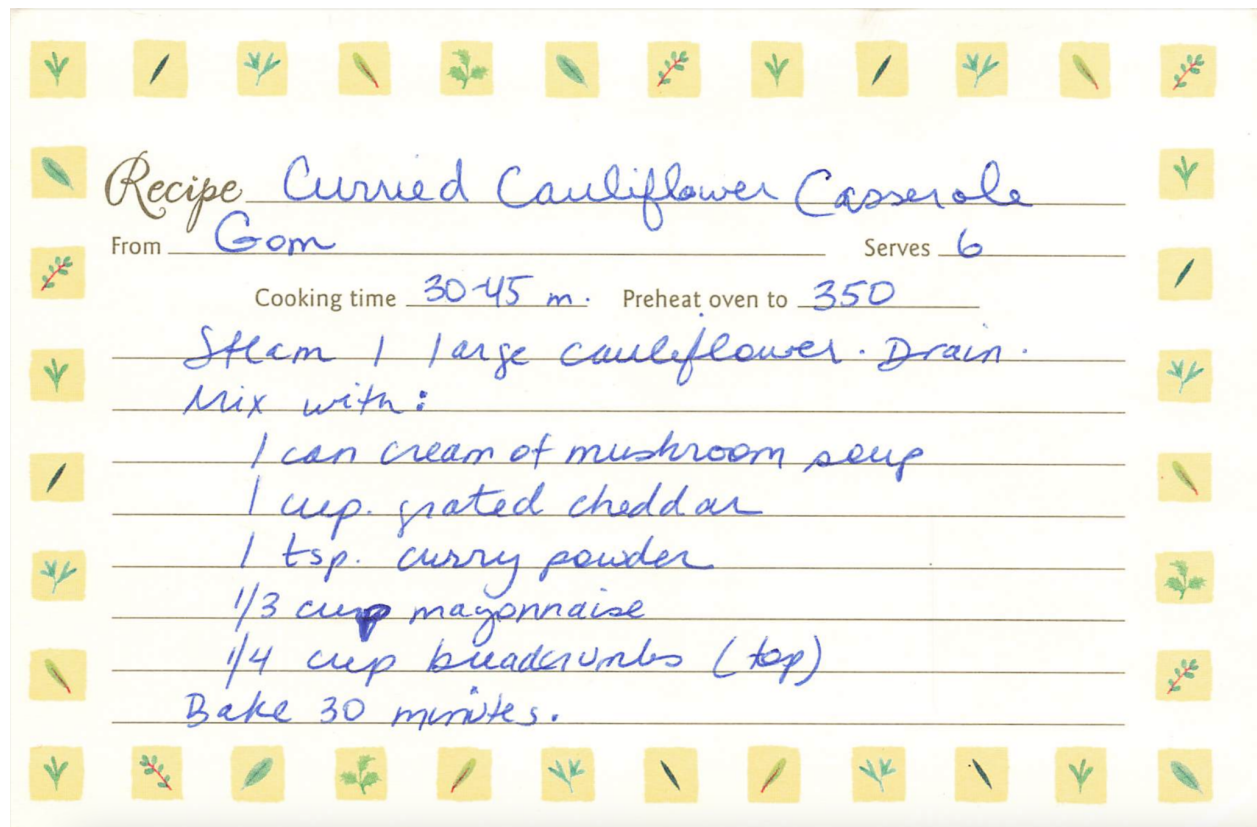 Recipe Curried Cauliflower Casserole
From Gom Serves 6
Cooking time 30-45 m. Preheat oven to 350
Steam 1 large cauliflower. Drain.
Mix with:
1 can cream of mushroom soup
1 cup. grated cheddar
1 tsp. curry powder
1/3 cup mayonnaise
1/4 cup breadcrumbs (top)
Bake 30 minutes.